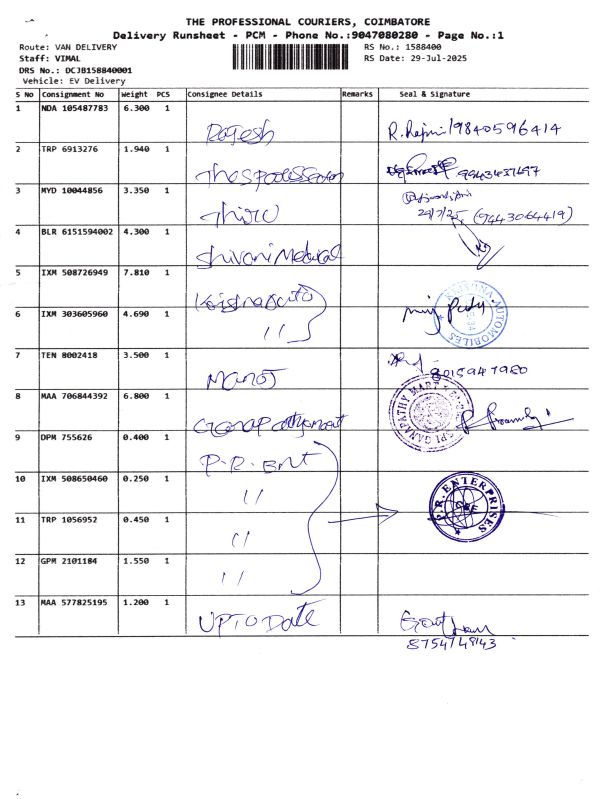 THE PROFESSIONAL COURIERS, COIMBATORE
Delivery Runsheet - PCM - Phone No.:9047080280 - Page No.:1
Route: VAN DELIVERY RS No.: 1588400
Staff: VIMAL RS Date: 29-Jul-2025
DRS No.: DCJB158840001
Vehicle: EV Delivery
S No Consignment No Weight PCS Consignee Details Remarks Seal & Signature
1 NDA 105487783 6.300 1 Rajesh R. Rajni/9840596414
2 TRP 6913276 1.940 1 9443437497
3 MYD 10044856 3.350 1 Thiru 29/7/25 (9443064419)
4 BLR 6151594002 4.300 1 Shivani Medical
5 IXM 508726949 7.810 1 AUTOMOBILES
6 IXM 303605960 4.690 1 "
7 TEN 8002418 3.500 1 Manoj 8015947980
8 MAA 706844392 6.800 1 Ganapathymart GANAPATHY MART
9 DPM 755626 0.400 1 P.R. Ent
10 IXM 508650460 0.250 1 " P.R. ENTERPRISES
11 TRP 1056952 0.450 1 "
12 GPM 2101184 1.550 1 "
13 MAA 577825195 1.200 1 UPTODate
8754748143